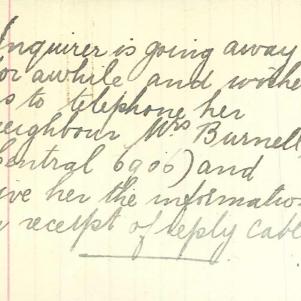 Inquirer is going away
for awhile and wishe
us to telephone her
neighbour Mrs Burnell
(Central 6906) and
give her the informatio
n receipt of reply cabl